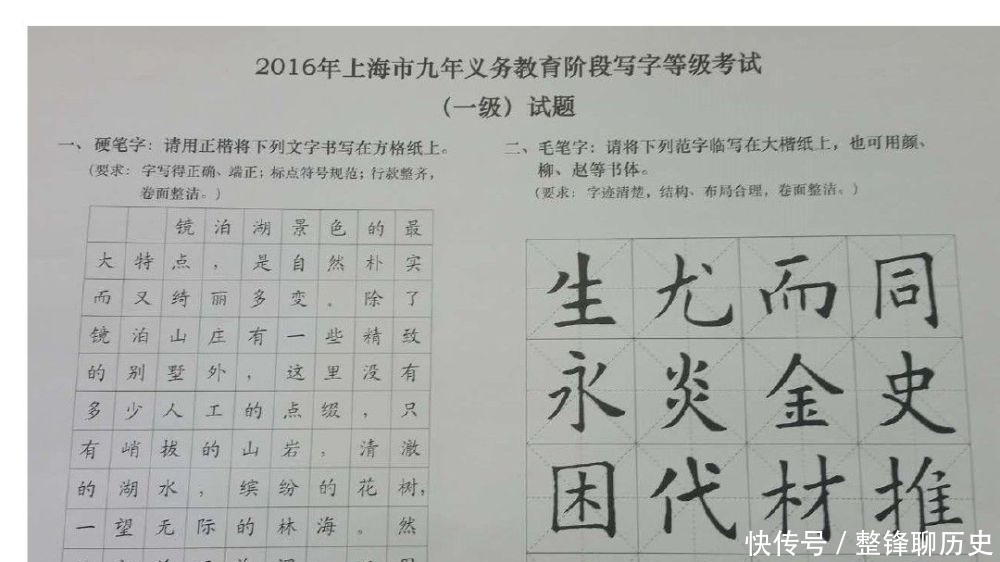 2016年上海市九年义务教育阶段写字等级考试
(一级)试题
一、硬笔字：请用正楷将下列文字书写在方格纸上。
(要求：字写得正确、端正；标点符号规范；行款整齐，
卷面整洁。)
镜泊湖景色的最
大特点，是自然朴实
而又绮丽多变。除了
镜泊山庄有一些精致
的别墅外，这里没有
多少人工的点缀，只
有峭拔的山岩，清澈
的湖水，缤纷的花树，
一望无际的林海。然
二、毛笔字：请将下列范字临写在大楷纸上，也可用颜、
柳、赵等书体。
(要求：字迹清楚，结构、布局合理，卷面整洁。)
生尤而同
永炎金史
困代材推
快传号/整锋聊历史